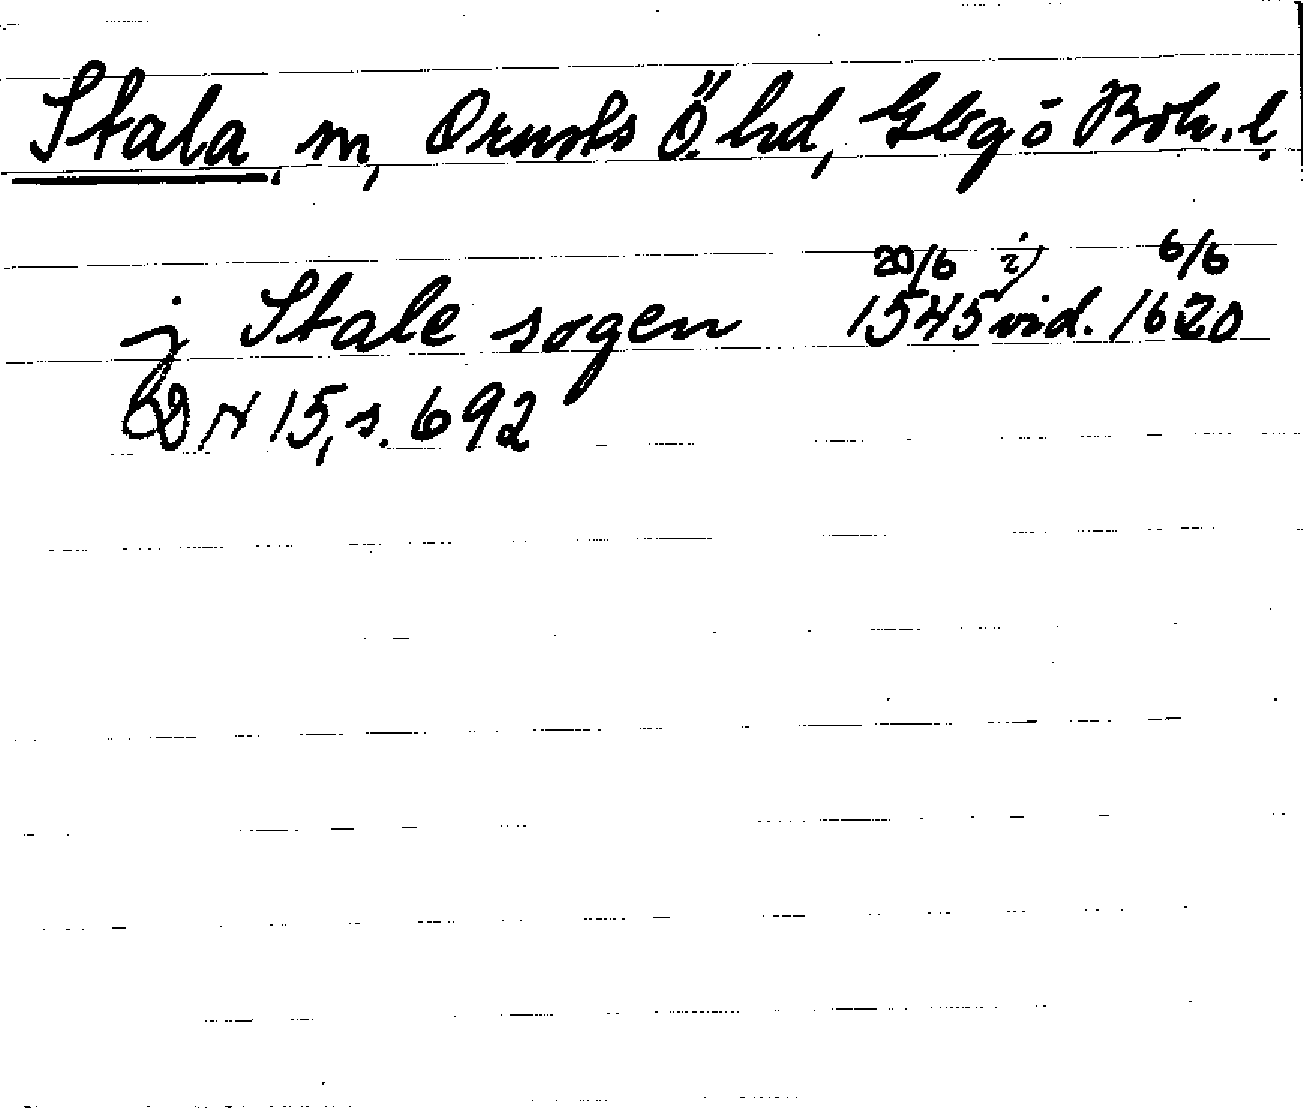 Stala, sn, Orusts Ö. hd, Gbg o Boh. l.
j Stale sogen 20/6 1545 i vid. 6/6 1620
DN 15, s. 692